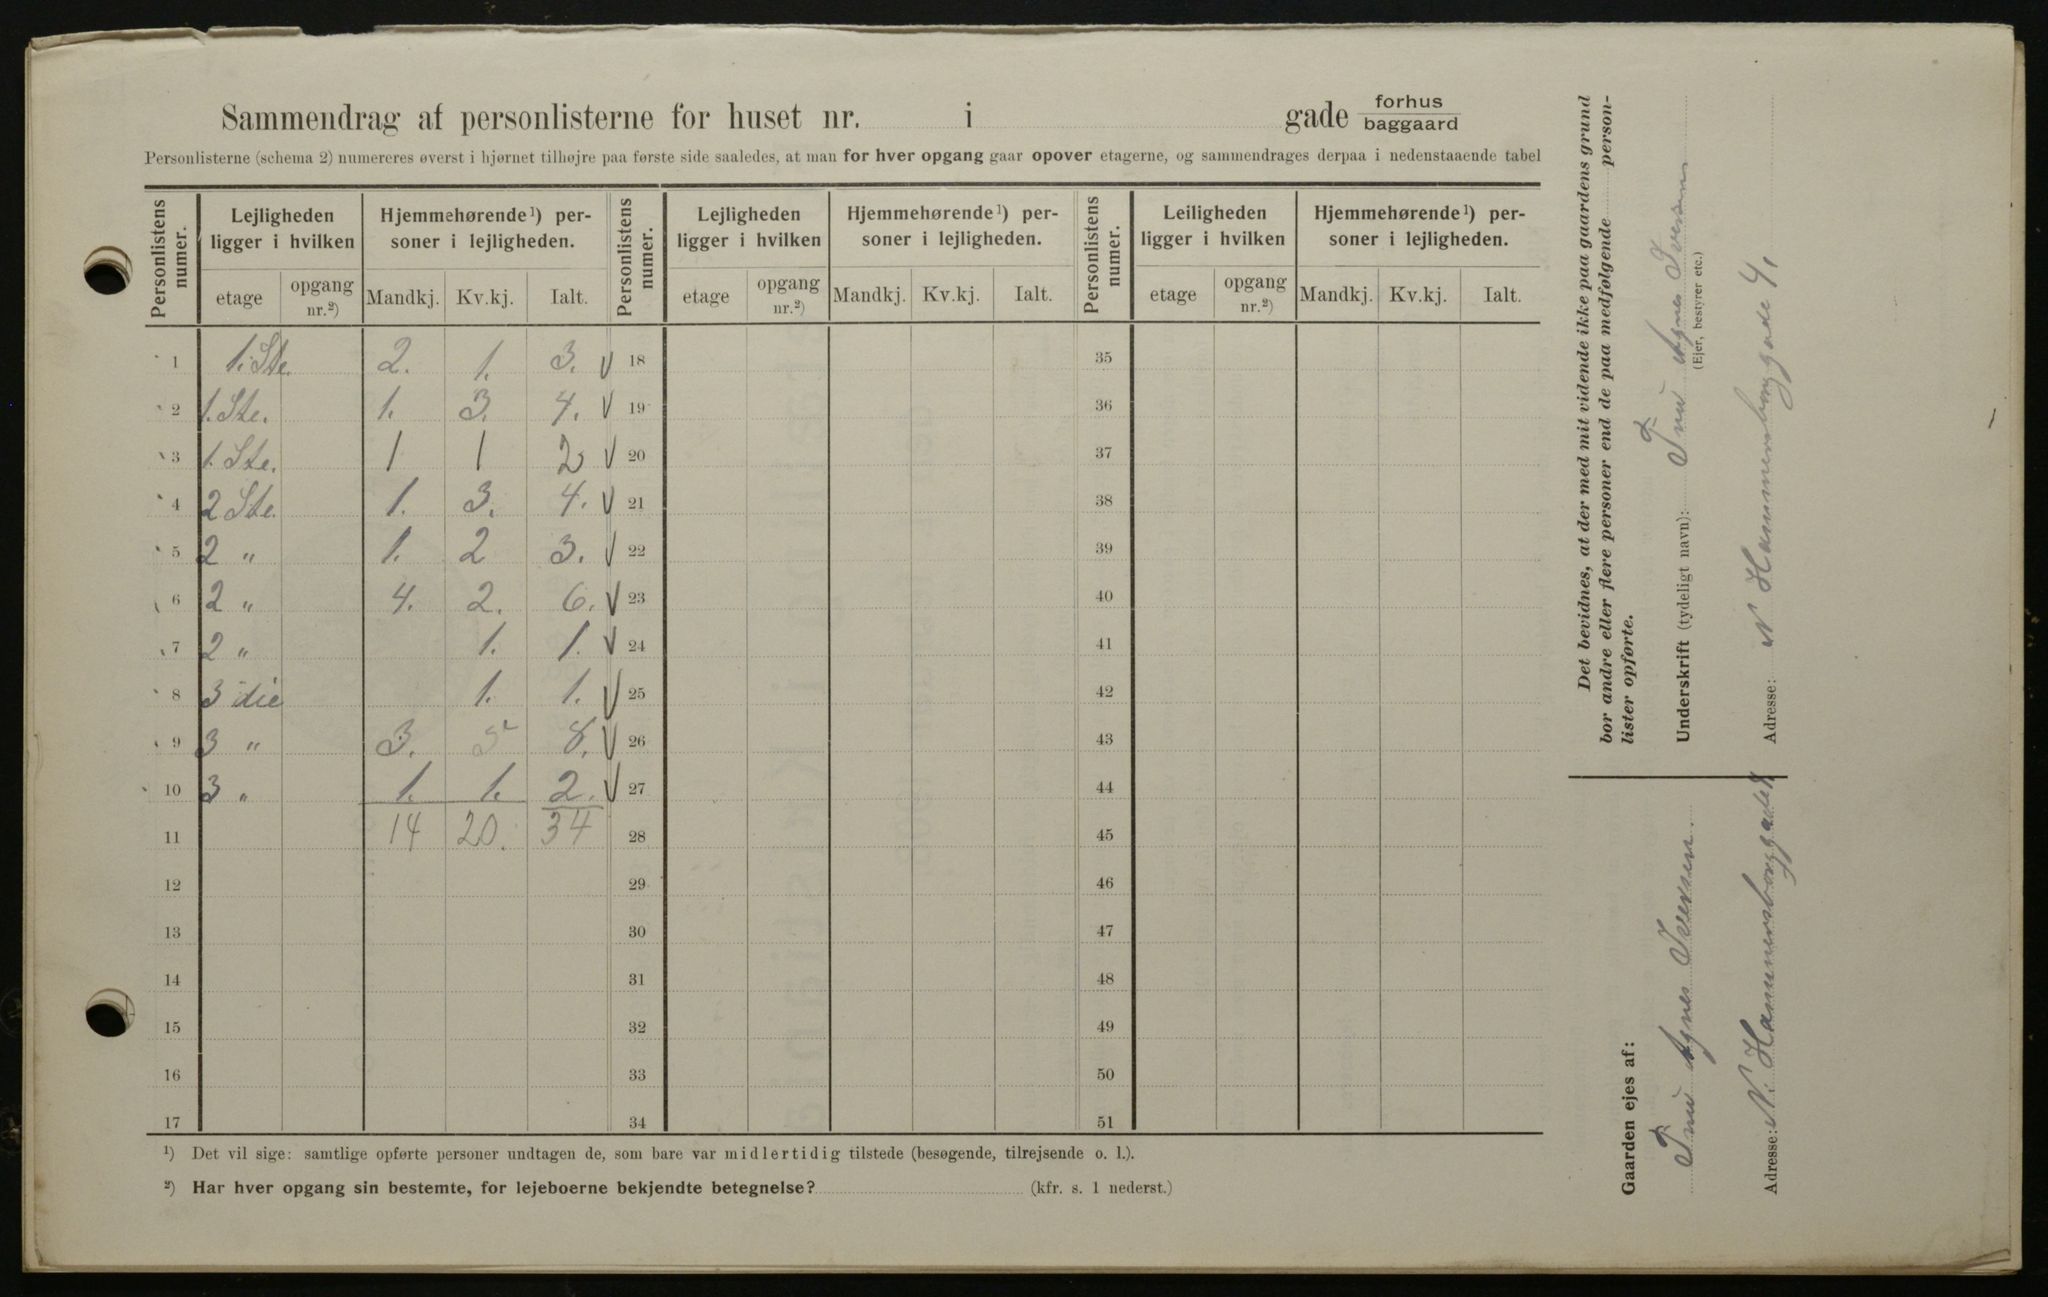 Sammendrag af personlisterne for huset nr. i gade forhus baggaard
Personlisterne (schema 2) numereres øverst i hjørnet tilhøjre paa første side saaledes, at man for hver opgang gaar opover etagerne, og sammendrages derpaa i nedenstaaende tabel
Personlistens numer. Lejligheden ligger i hvilken Hjemmehørende¹) personer i lejligheden. Personlistens numer. Lejligheden ligger i hvilken Hjemmehørende¹) personer i lejligheden. Personlistens numer. Leiligheden ligger i hvilken Hjemmehørende¹) personer i lejligheden.
etage opgang nr.²) Mandkj. Kv.kj. Ialt. etage opgang nr.²) Mandkj. Kv.kj. Ialt. etage opgang nr.²) Mandkj. Kv.kj. Ialt.
1 1. Ste. 2. 1. 3. V 18 35
2 1. Ste. 1. 3. 4. V 19 36
3 1. Ste. 1 1 2 V 20 37
4 2 Ste. 1. 3. 4. V 21 38
5 2 " 1. 2 3. V 22 39
6 2 " 4. 2. 6. V 23 40
7 2 " 1. 1. V 24 41
8 3 die 1. 1. V 25 42
9 3 " 3. 5 8. V 26 43
10 3 " 1. 1. 2. V 27 44
11 14 20. 34 28 45
12 29 46
13 30 47
14 31 48
15 32 49
16 33 50
17 34 51
¹) Det vil sige: samtlige opførte personer undtagen de, som bare var midlertidig tilstede (besøgende, tilrejsende o. l.).
²) Har hver opgang sin bestemte, for lejeboerne bekjendte betegnelse? (kfr. s. 1 nederst.)
Det bevidnes, at der med mit vidende ikke paa gaardens grund
bor andre eller flere personer end de paa medfølgende person-
lister opførte.
Underskrift (tydeligt navn): Agnes Iversen
(Ejer, bestyrer etc.)
Adresse: N. Hammersborggade 4.
Gaarden ejes af:
Agnes Iversen.
Adresse: N. Hammersborggade